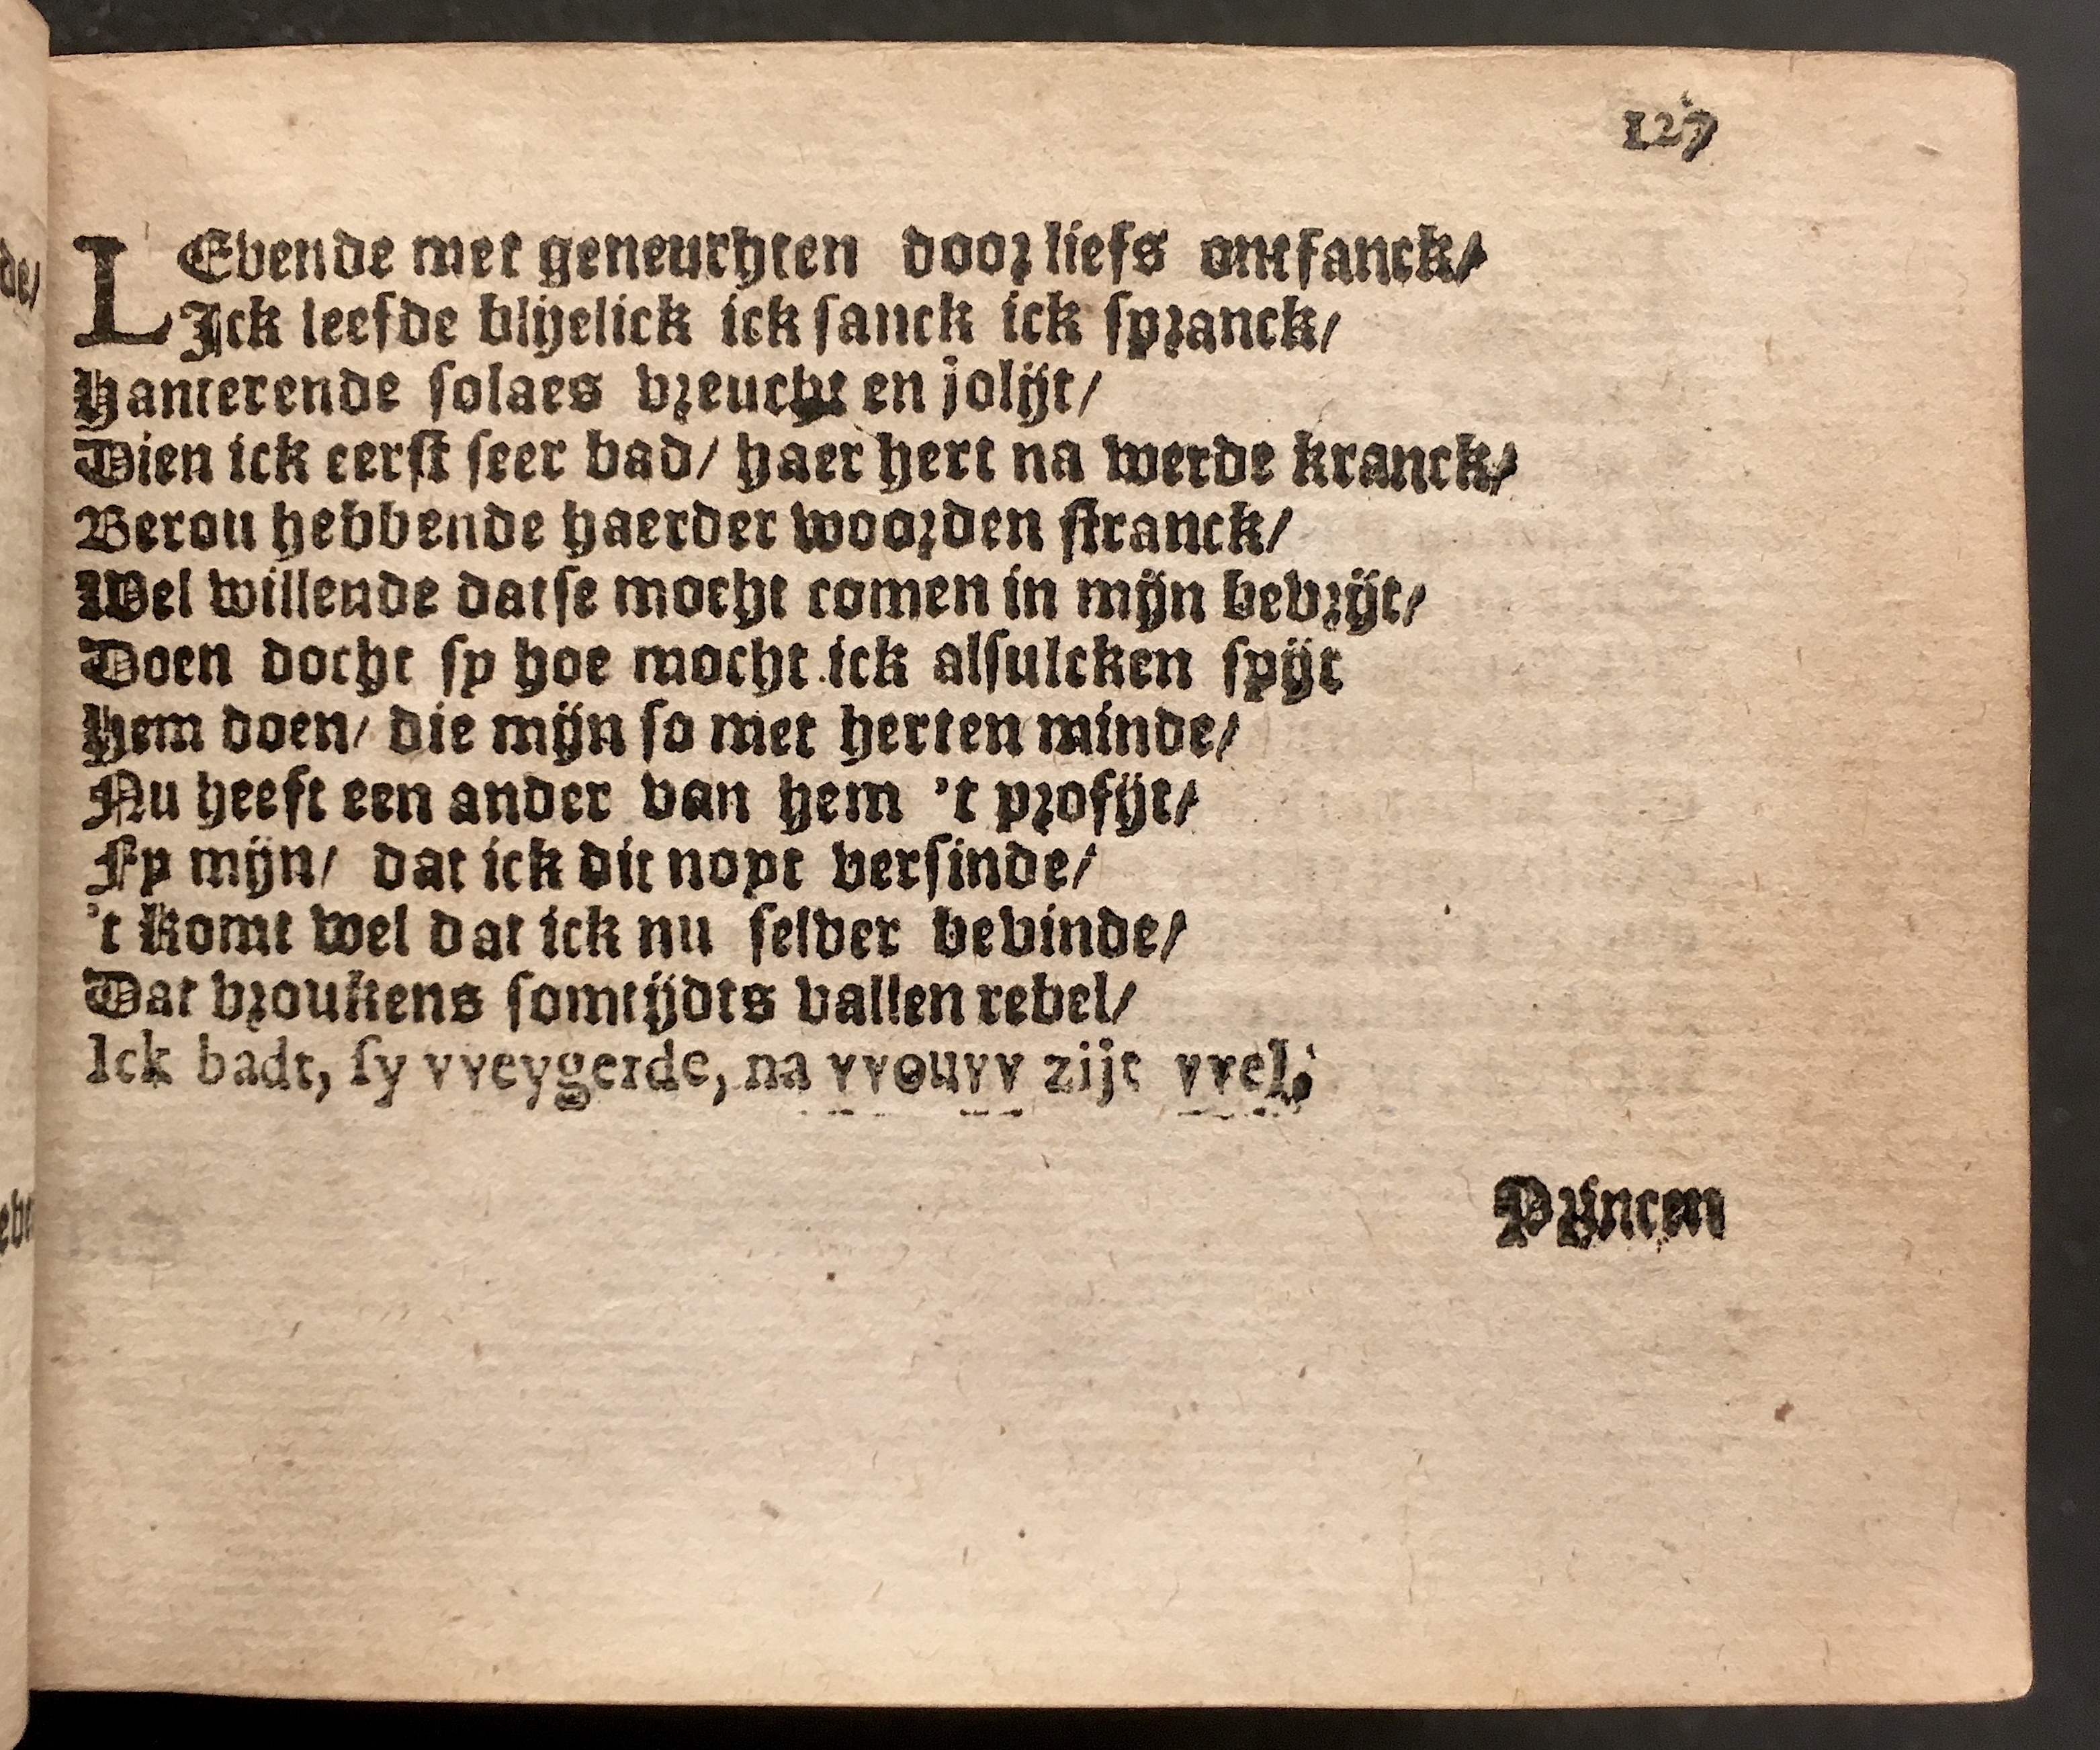 127
LEvende met geneuchten door liefs ontfanck/
Ick leefde blijelick ick sanck ick spranck/
Hanterende solaes vreucht en jolijt/
Dien ick eerst seer bad/ haer hert na werde kranck/
Berou hebbende haerder woorden stranck/
Wel willende datse mocht comen in mijn bevrijt/
Doen docht sy hoe mocht ick alsulcken spijt
Hem doen/ die mijn so met herten minde/
Nu heeft een ander van hem 't profijt/
Fy mijn/ dat ick dit noyt versinde/
't Komt wel dat ick nu selver bevinde/
Dat vroukens somtijdts vallen rebel/
Ick badt, sy vveygerde, na vvouvv zijt vvel.
Princen